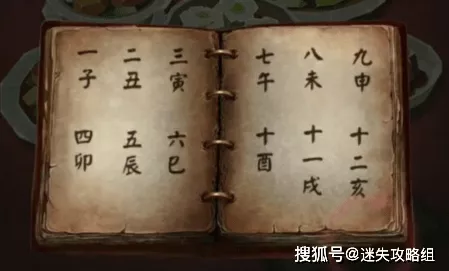 一子
二丑
三寅
四卯
五辰
六巳
七午
八未
九申
十酉
十一戌
十二亥
搜狐号@迷失攻略组